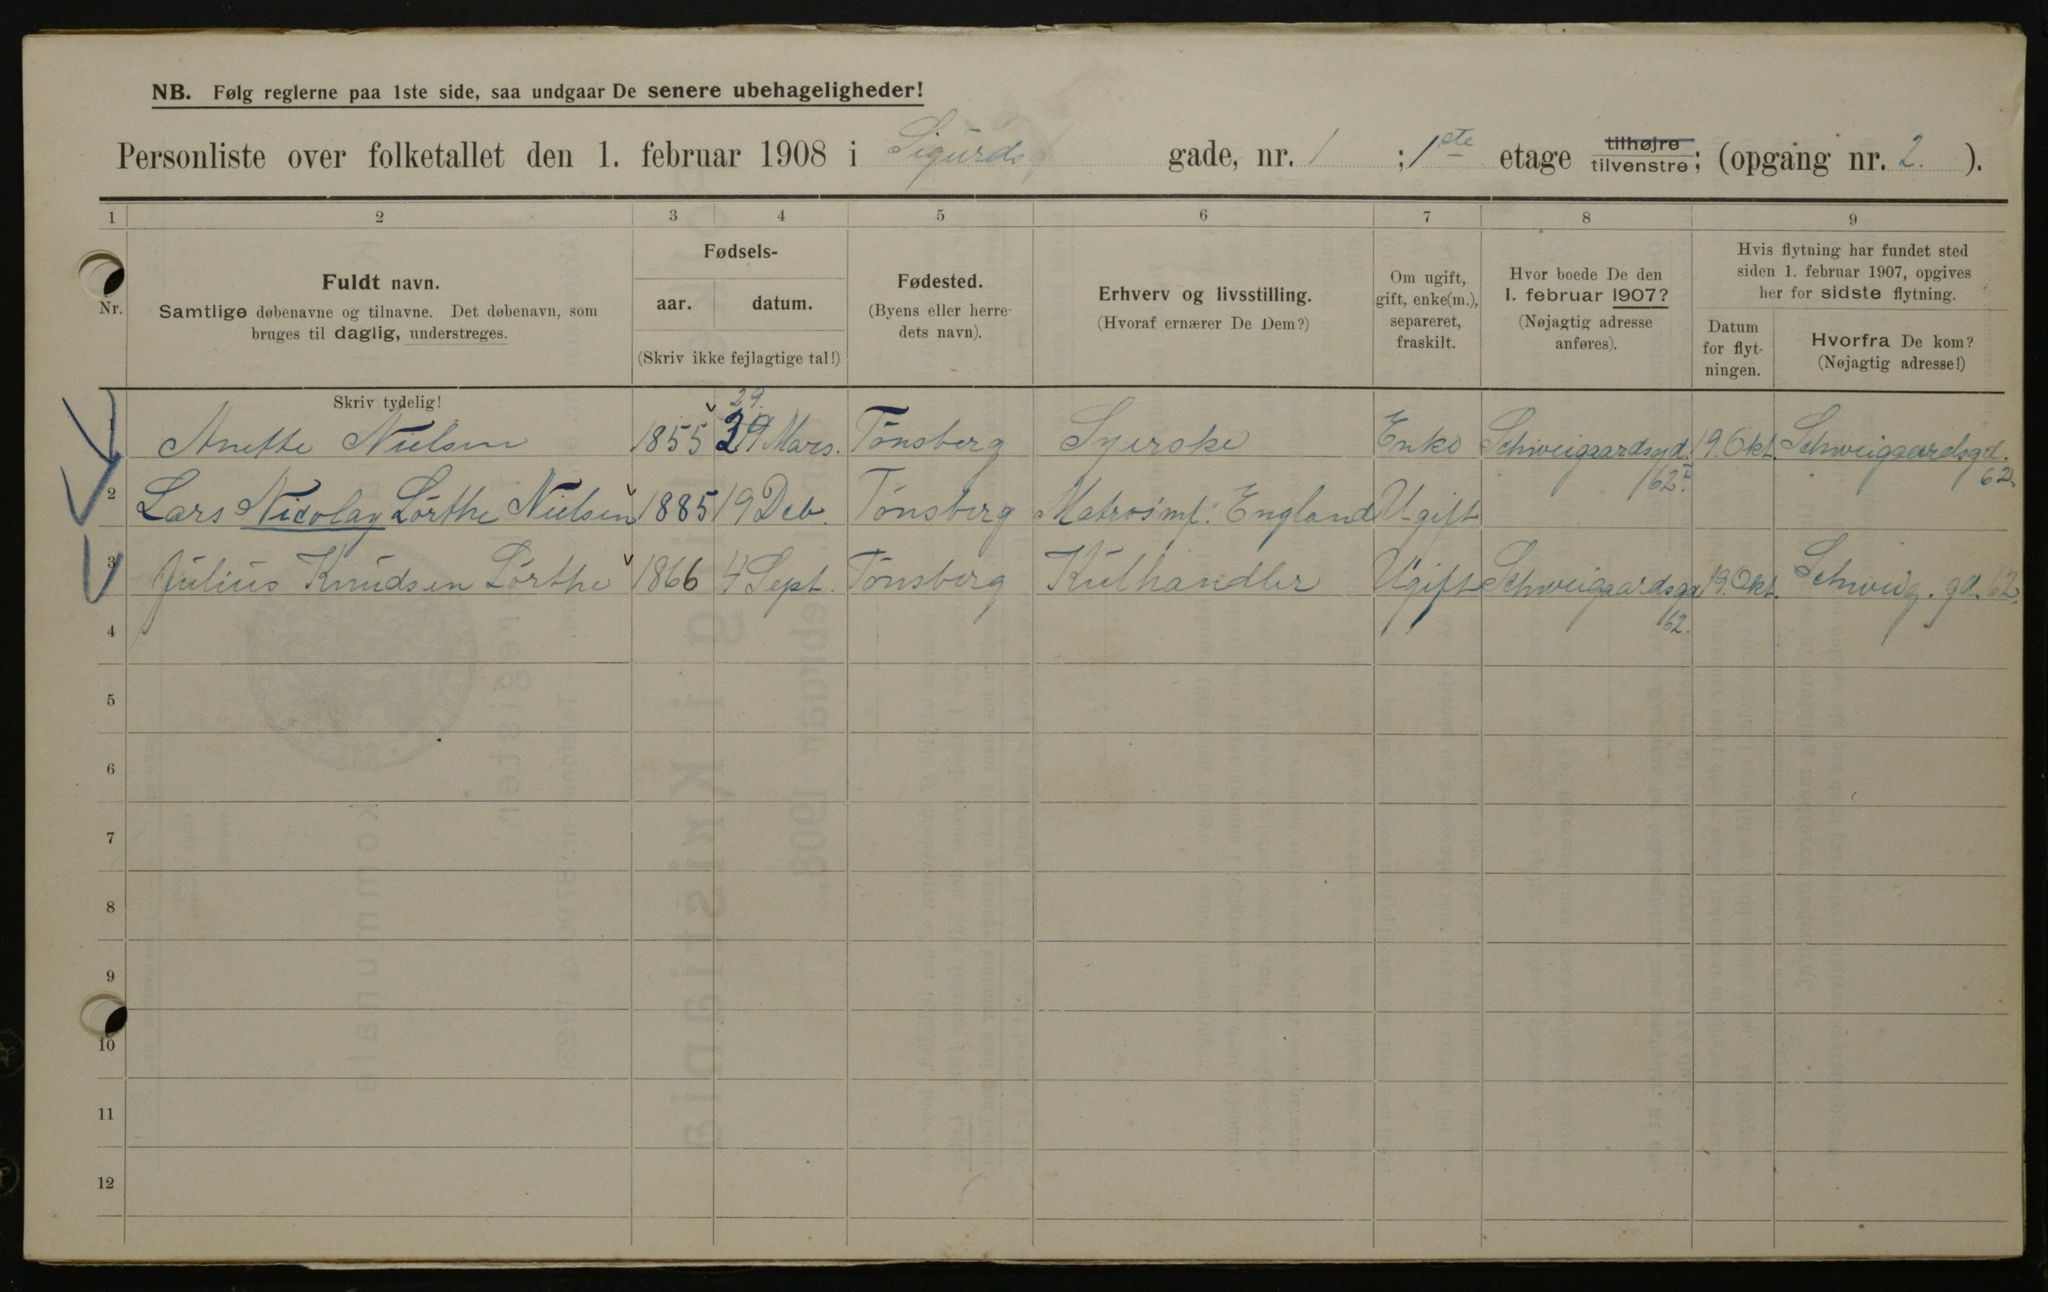 NB. Følg reglerne paa 1ste side, saa undgaar De senere ubehageligheder!
Personliste over folketallet den 1. februar 1908 i Sigurdsg gade, nr. 1 ; 1ste etage tilhøjre tilvenstre; (opgang nr. 2. ).
1 2 3 4 5 6 7 8 9
Nr.
Fuldt navn.
Samtlige døbenavne og tilnavne. Det døbenavn, som
bruges til daglig, understreges.
Skriv tydelig!
Fødsels-
aar. datum.
(Skriv ikke fejlagtige tal!)
Fødested.
(Byens eller herre-
dets navn).
Erhverv og livsstilling.
(Hvoraf ernærer De Dem?)
Om ugift,
gift, enke(m.),
separeret,
fraskilt.
Hvor boede De den
1. februar 1907?
(Nøjagtig adresse
anføres).
Hvis flytning har fundet sted
siden 1. februar 1907, opgives
her for sidste flytning.
Datum
for flyt-
ningen.
Hvorfra De kom?
(Nøjagtig adresse!)
29.
1 Anette Nielsen 1855 29 Mars. Tönsberg Syerske Enke Schweigaardsgd. 19. Okt. Schweigaardsgd.
62 I. 62.
2 Lars Nicolay Lörthe Nielsen 1885 19 Deb. Tönsberg Matros mf: England Ugift
3 Julius Knudsen Lörthe 1866 4 Sept. Tönsberg Kulhandler Ugift Schweigaardsgd 19. Okt. Schweig. gd. 62.
62.
4
5
6
7
8
9
10
11
12